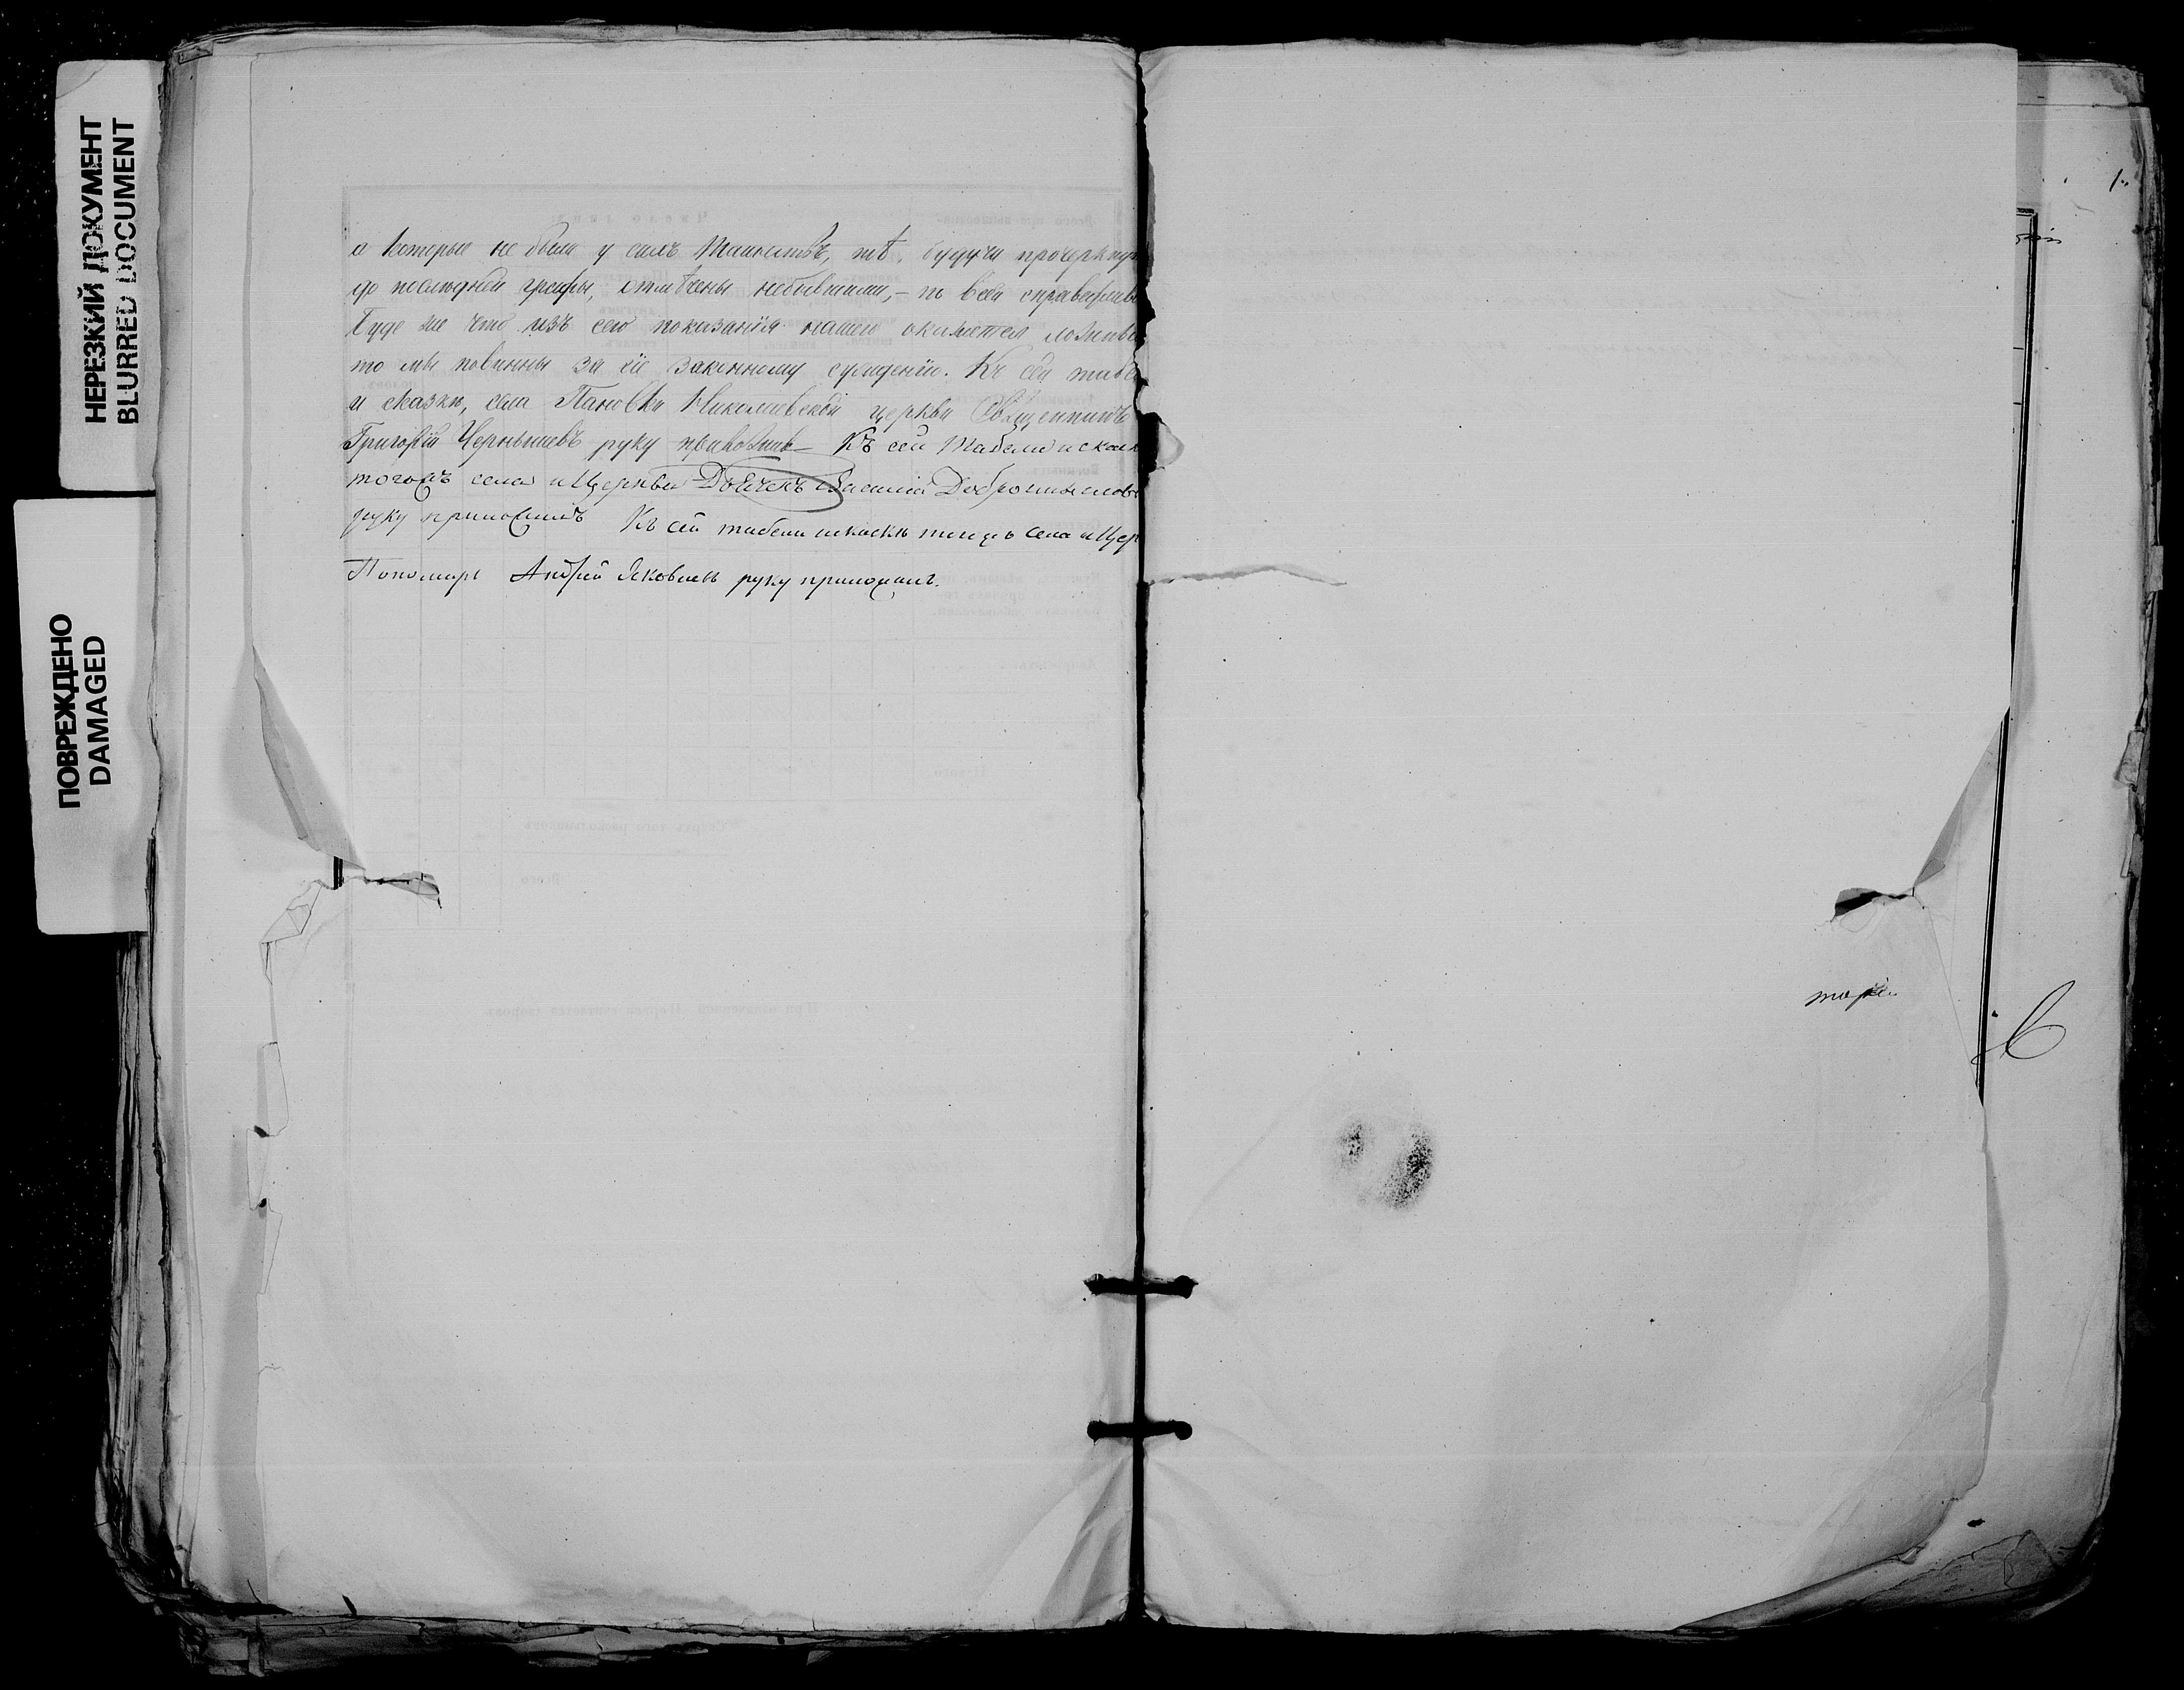 НЕРЕЗКИЙ ДОКУМЕНТ
BLURRED DOCUMENT
ПОВРЕЖДЕНО
DAMAGED
а которые не были у сихъ Таинствъ, тѣ, будучи прочеркну
до последней графы, отмѣчены небывшими, – по всей справедлив
Буде же что изъ сего показанія нашего окажется ложнымъ
то мы повинны за сіе законному сужденію. Къ сей табели
и сказкѣ, села Пановки Николаевской церкви Священникъ
Григорій Чернышевъ руку приложилъ – Къ сей Табели и сказк
тогожъ села и Церкви Дьячекъ Василій Добросмысловъ
руку приложилъ Къ сей табели и скаскѣ тогожъ села и Цер
Пономарь Андрей Яковлевъ руку приложилъ.